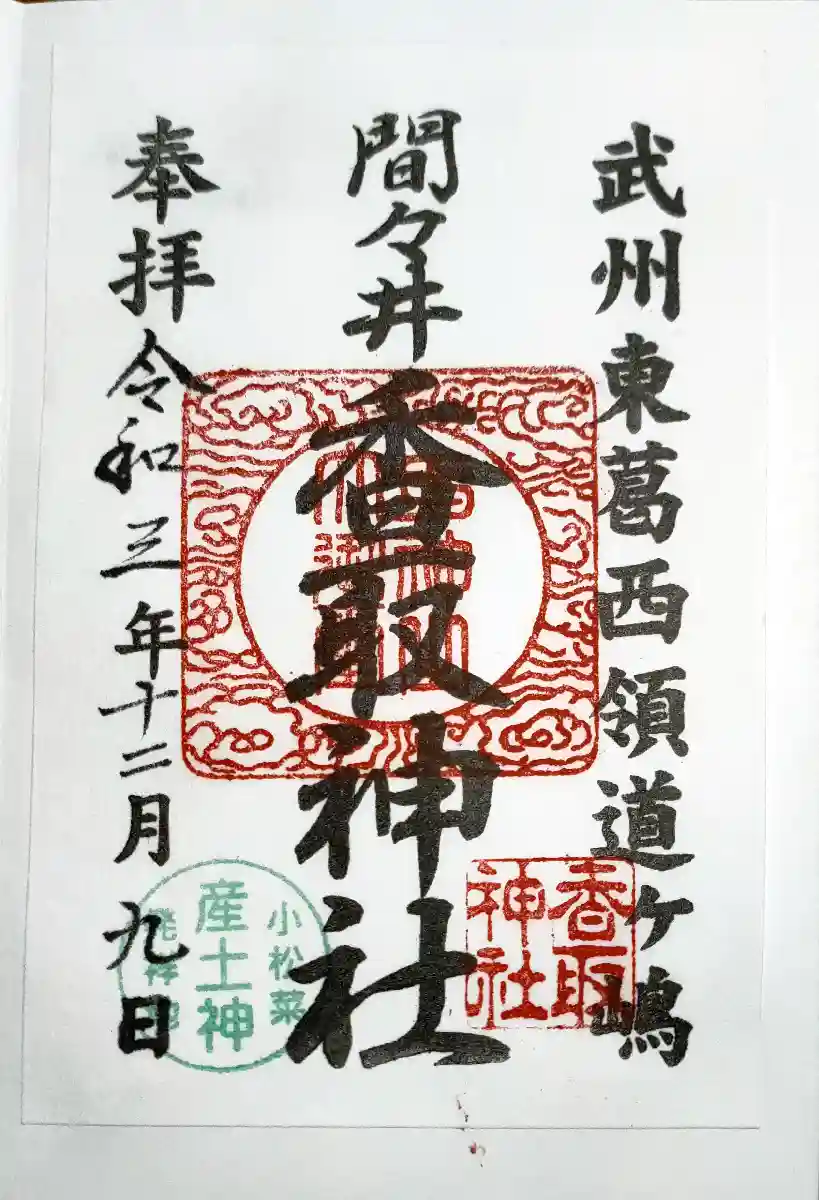 武州東葛西領道ヶ嶋
間々井香取神社
奉拝令和三年十二月九日
香取
神社
小松菜
産土神
発祥地